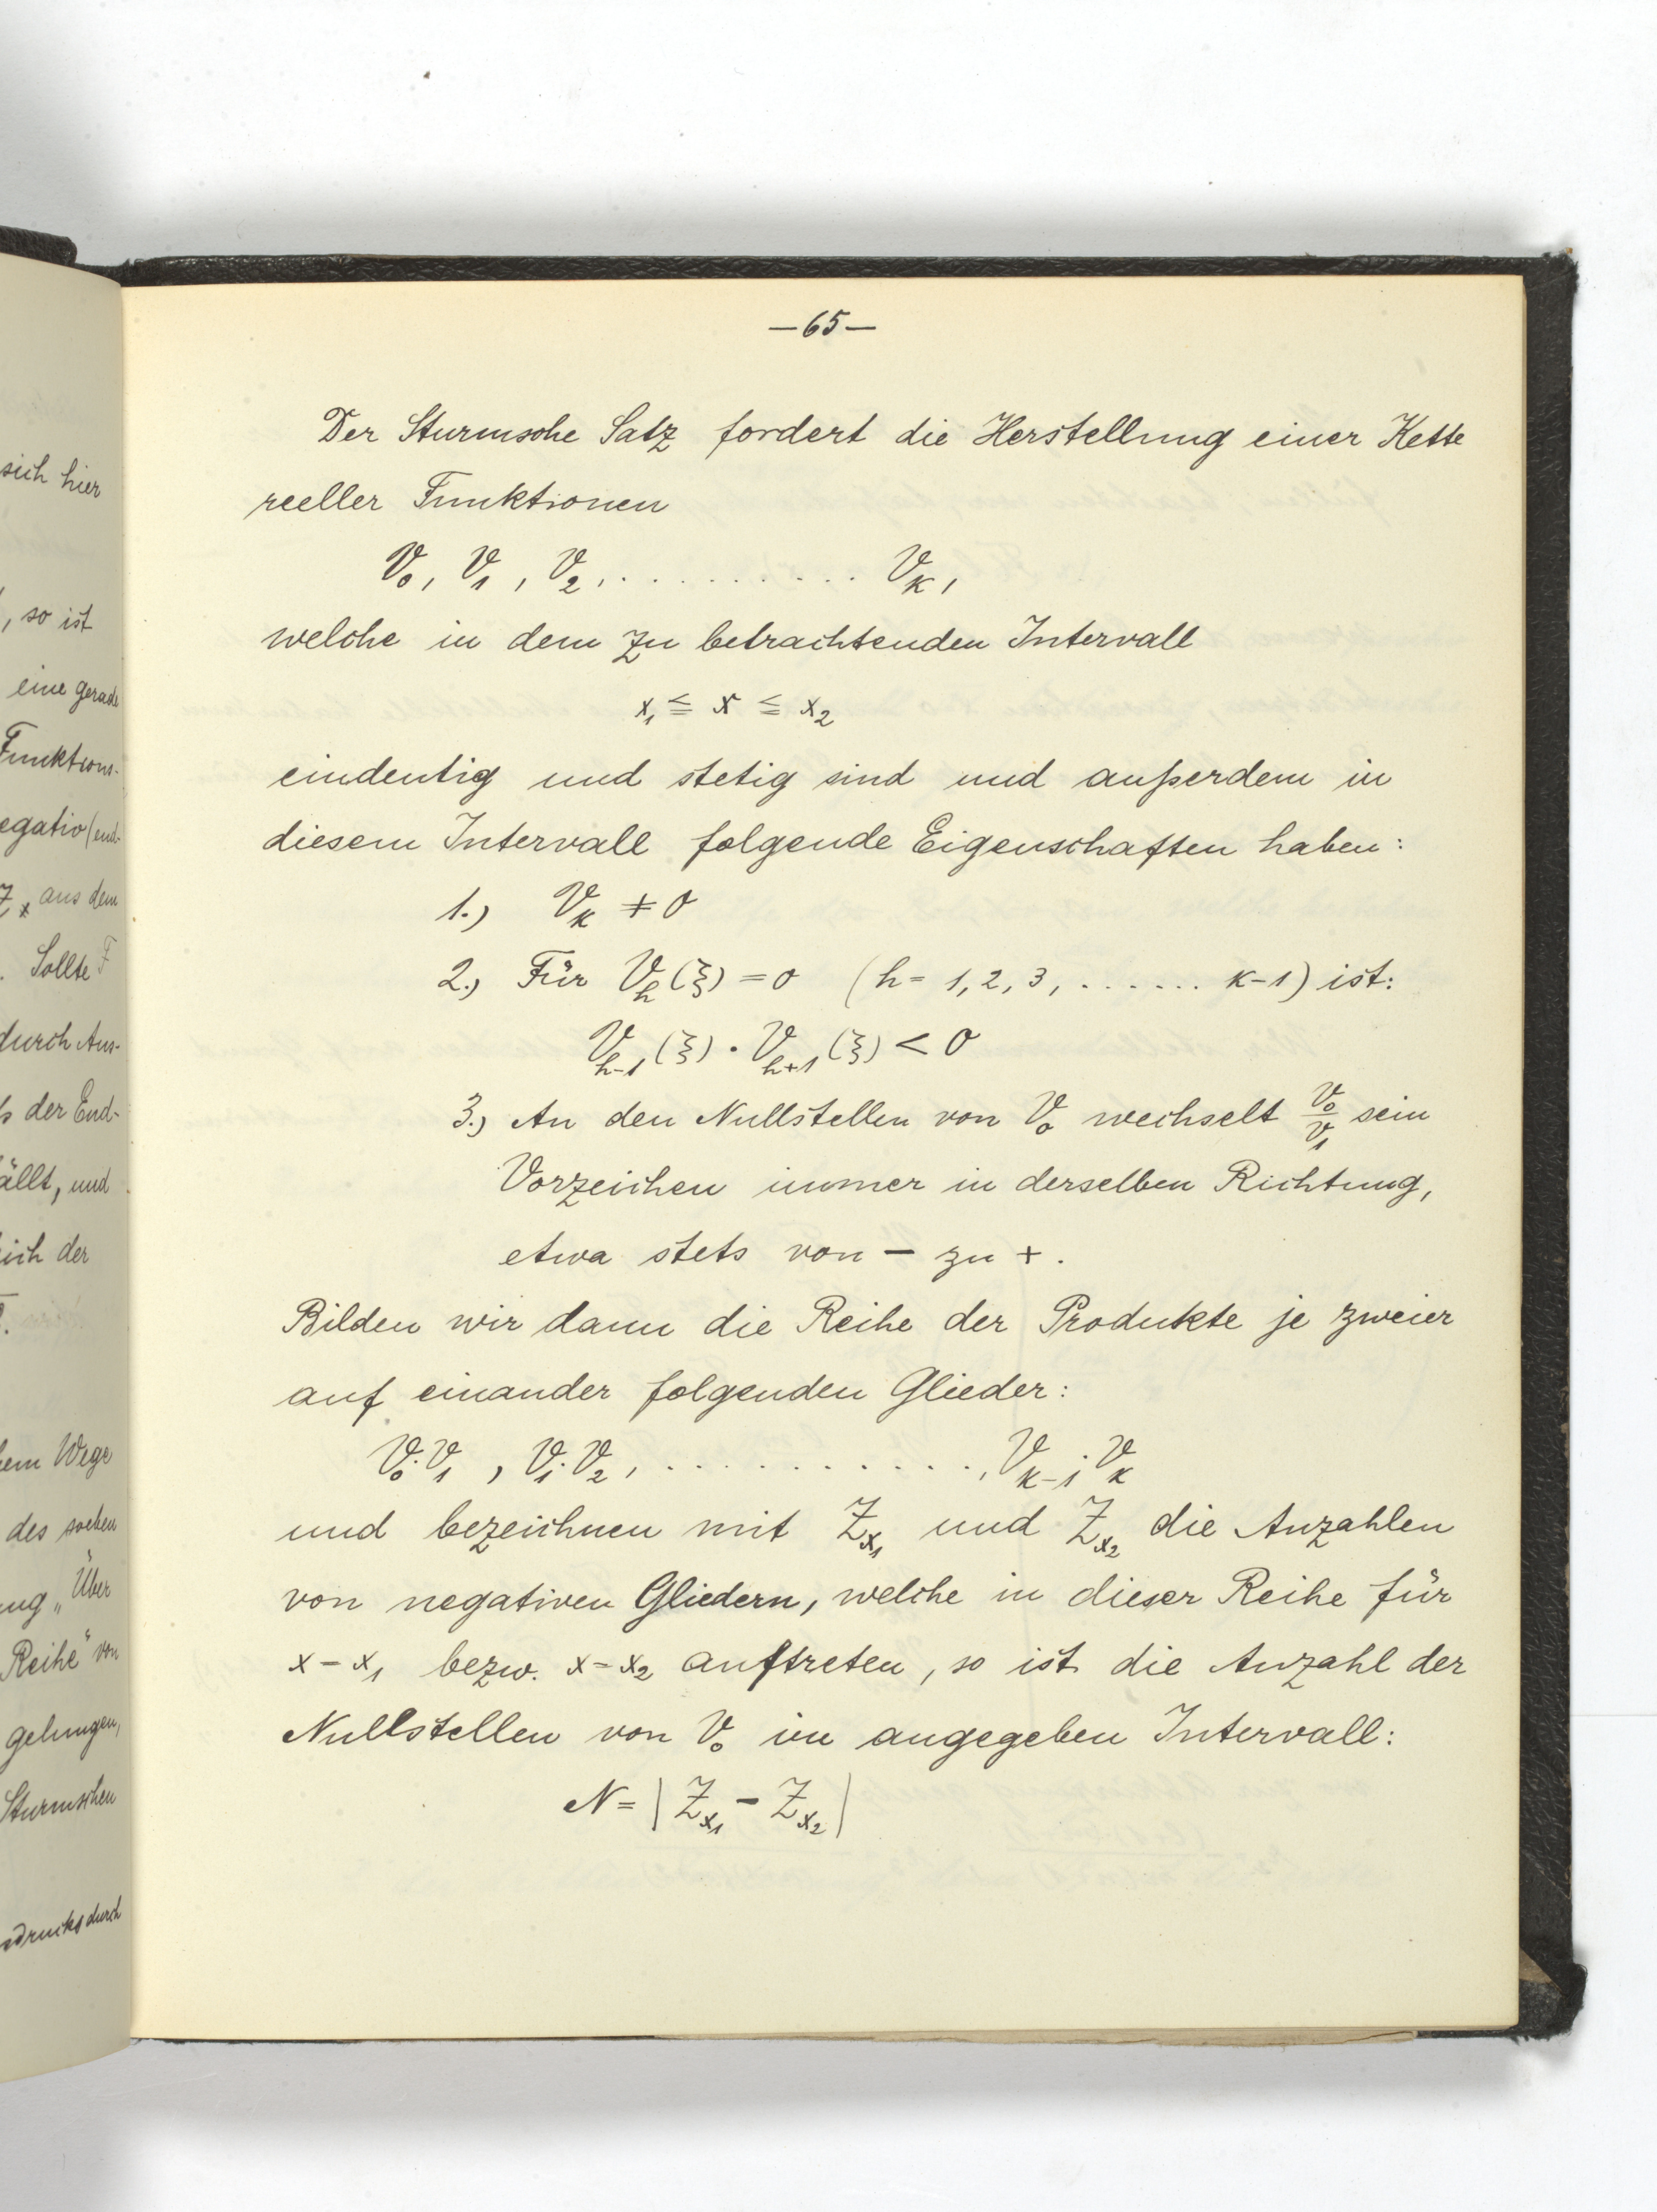 sich hier
, so ist
eine gerade
Funktions-
egativ (end-
Z_x aus dem
. Sollte F
durch Aus-
der End-
ällt, und
ich der
em Wege
des soeben
ung „Über
Reihe" von
gelungen,
Sturmschen
sdrucks durch
—65—
Der Sturmsche Satz fordert die Herstellung einer Kette
reeller Funktionen
V₀, V₁, V₂, . . . . . . . . . . . V_k,
welche in dem zu betrachtenden Intervall
x₁ ≦ x ≦ x₂
eindeutig und stetig sind und außerdem in
diesem Intervall folgende Eigenschaften haben:
1.) V_k ≠ 0
2.) Für V_h(ξ) = 0 (h = 1, 2, 3, ....... k-1) ist:
V_{h-1}(ξ) · V_{h+1}(ξ) < 0
3.) An den Nullstellen von V₀ wechselt V₀/V₁ sein
Vorzeichen immer in derselben Richtung,
etwa stets von − zu +.
Bilden wir dann die Reihe der Produkte je zweier
auf einander folgenden Glieder:
V₀·V₁, V₁·V₂, . . . . . . . . . . . ., V_{k-1}·V_k
und bezeichnen mit Z_{x₁} und Z_{x₂} die Anzahlen
von negativen Gliedern, welche in dieser Reihe für
x = x₁ bezw. x = x₂ auftreten, so ist die Anzahl der
Nullstellen von V₀ im angegeben Intervall:
N = | Z_{x₁} − Z_{x₂} |